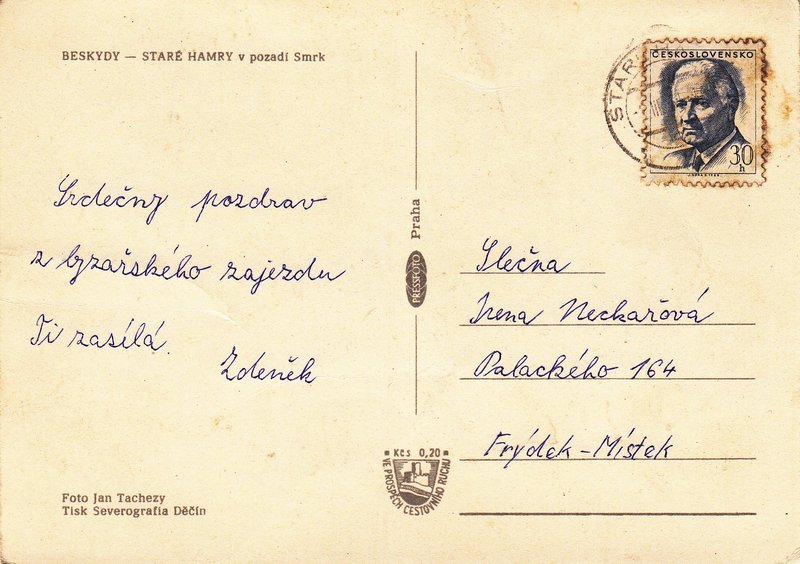 BESKYDY — STARÉ HAMRY v pozadí Smrk
ČESKOSLOVENSKO
30
h
STAR
Srdečný pozdrav
z lyžařského zajezdu
Ti zasílá
Zdeněk
Praha
PRESSFOTO
Slečna
Irena Neckařová
Palackého 164
Frýdek-Místek
Kčs 0,20
VE PROSPĚCH CESTOVNÍHO RUCHU
Foto Jan Tachezy
Tisk Severografia Děčín